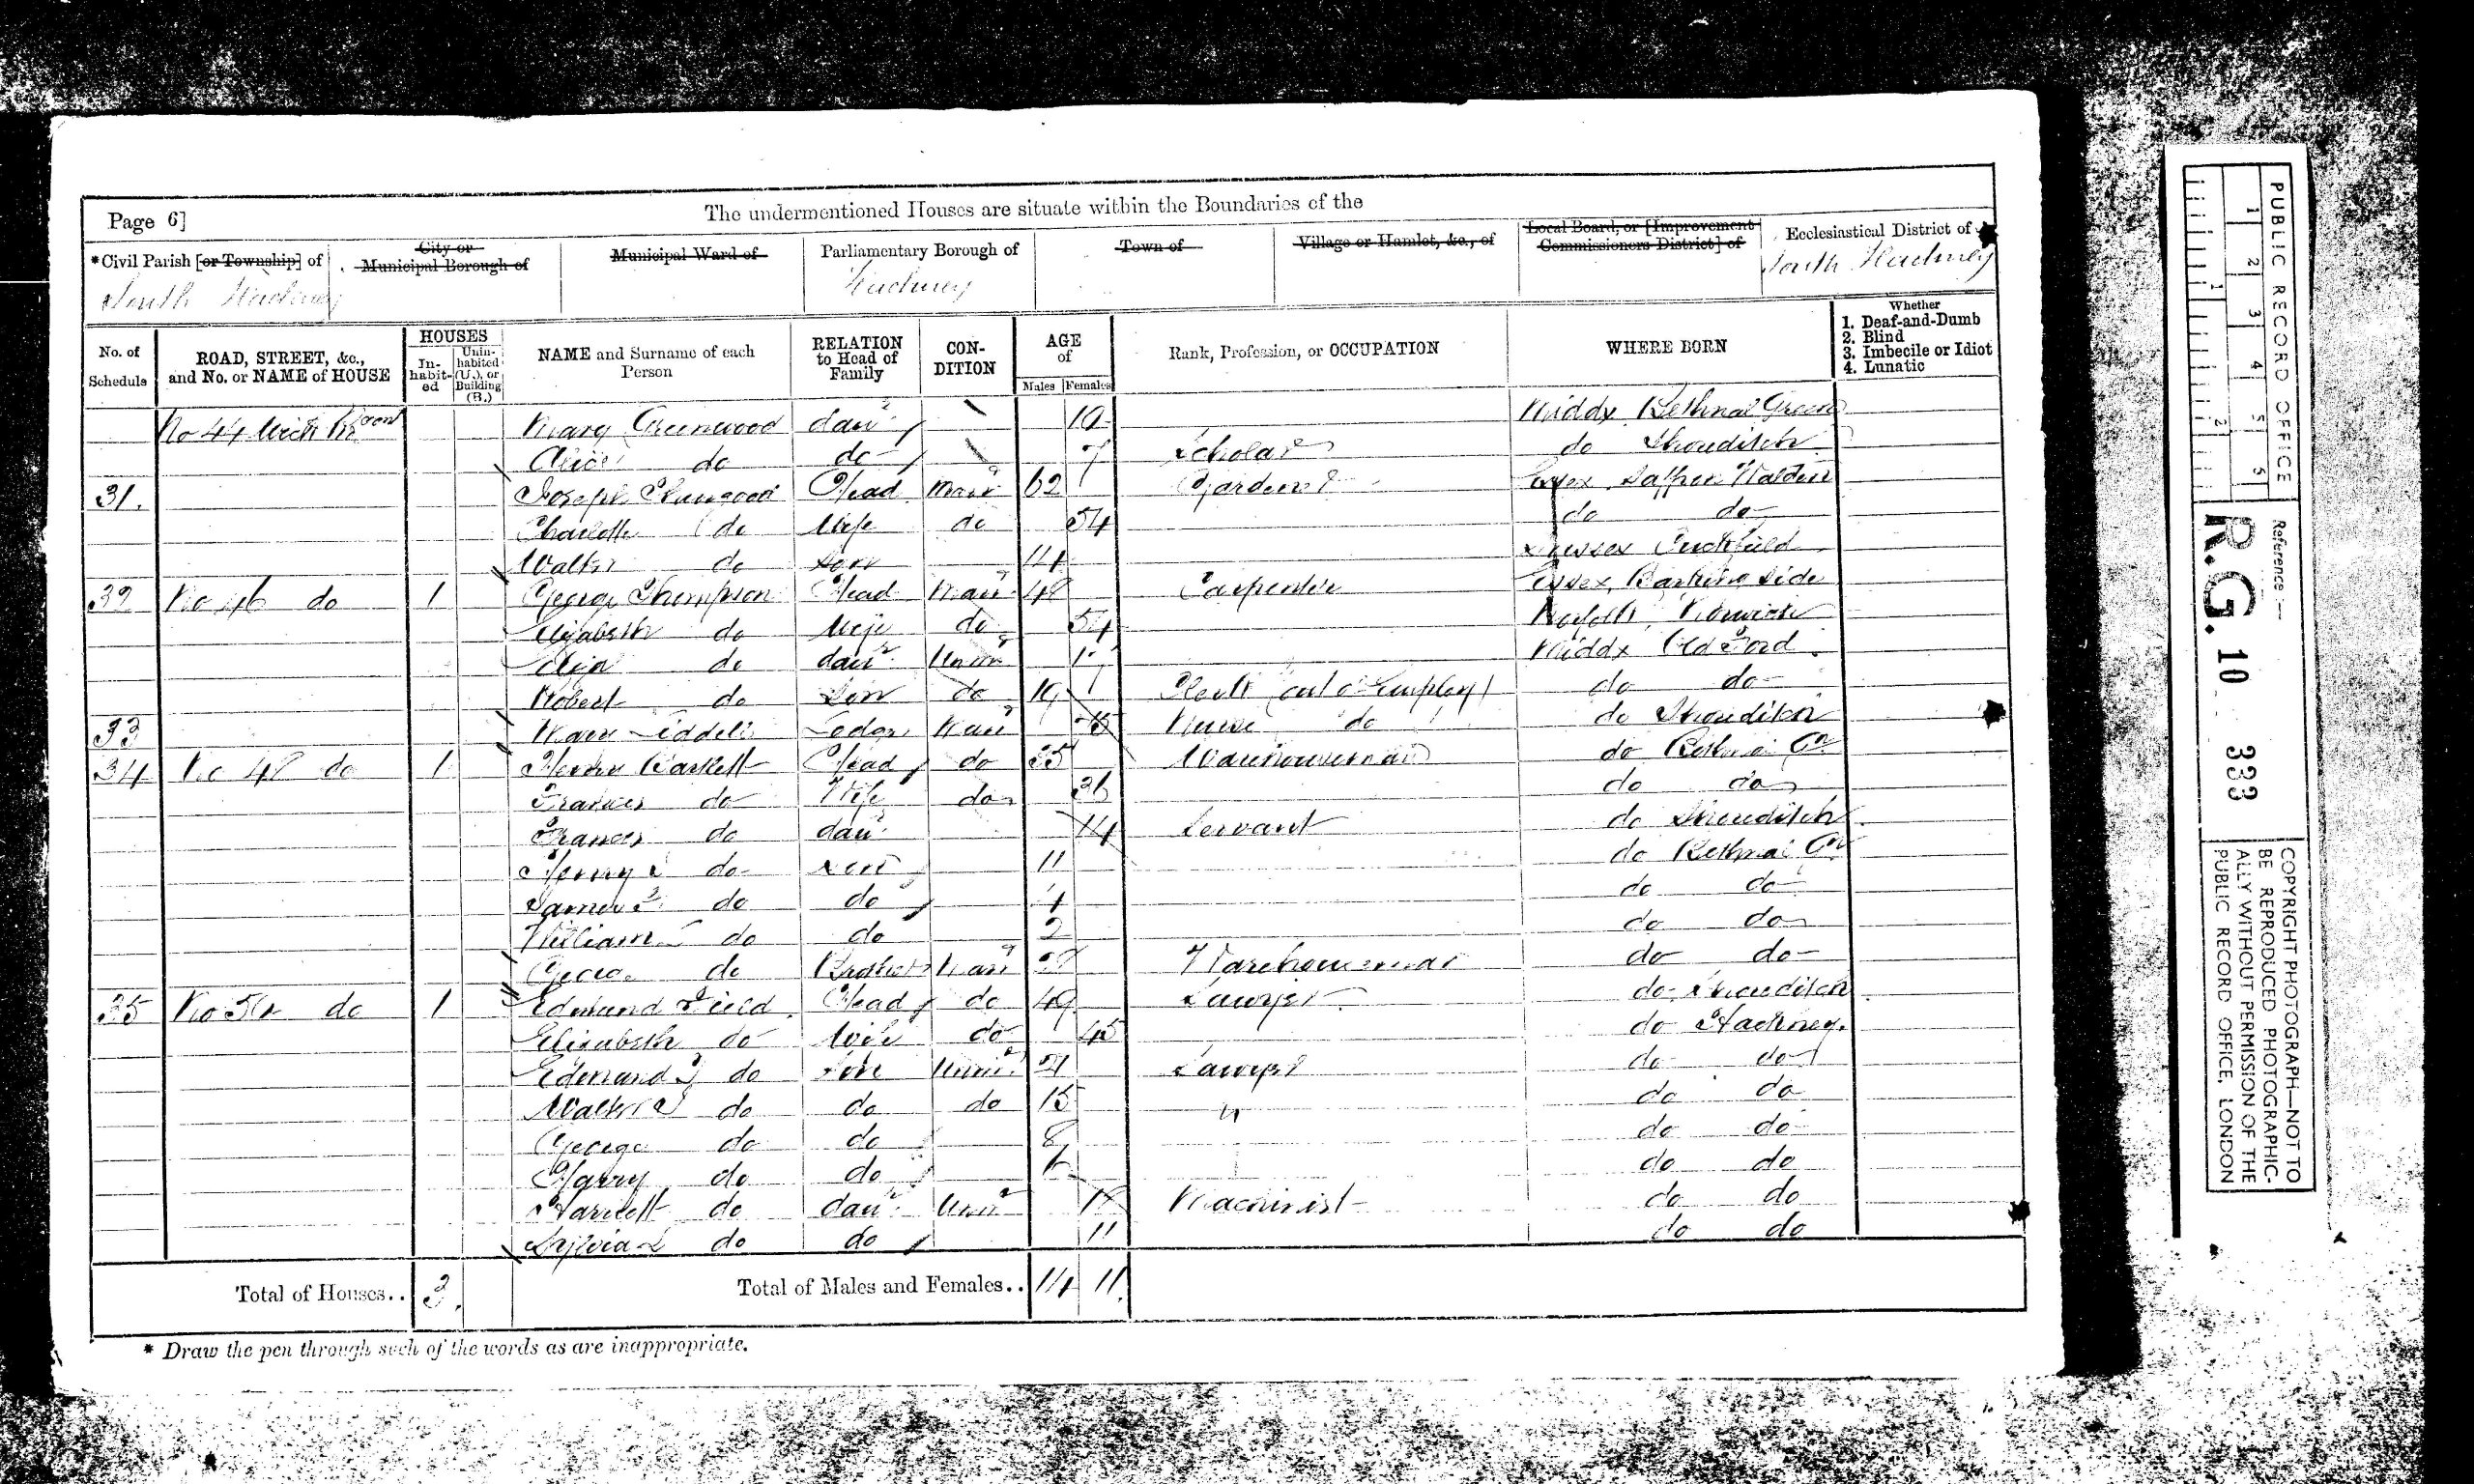 The undermentioned Houses are situate within the Boundaries of the
Page 6]
*Civil Parish [or Township] of
South Hackney
City or Municipal Borough of
Municipal Ward of
Parliamentary Borough of
Hackney
Town of
Village or Hamlet, &c., of
Local Board, or [Improvement Commissioners District] of
Ecclesiastical District of
South Hackney
No. of Schedule
ROAD, STREET, &c., and No. or NAME of HOUSE
HOUSES
In-habit-ed
Unin-habited (U.), or Building (B.)
NAME and Surname of each Person
RELATION to Head of Family
CON-DITION
AGE of
Males Females
Rank, Profession, or OCCUPATION
WHERE BORN
Whether
1. Deaf-and-Dumb
2. Blind
3. Imbecile or Idiot
4. Lunatic
No 44 Wick Mary Greenwood daur Middx Bethnal Green
Alice do do 7 Scholar do Shoreditch
31. Joseph Head Marr 62 Gardener Essex Saffron Walden
Charlotte do Wife do 54 do do
Walter do Son 14 Sussex Cuckfield
32 No 46 do 1 George Thompson Head Marr 48 Carpenter Essex, Barking Side
Elizabeth do Wife do 54 Norfolk Norwich
do daur Unmr 17 Middx Old Ford
Robert do Son do do do
33 Mary Marr Nurse do do Shoreditch
34 No 48 do 1 Head do 35 Warehouseman do Bethnal Gn
Frances do Wife do 36 do do
Frances do daur 14 Servant do Shoreditch
Henry do Son 11 do Bethnal Gn
do do 4 do do
William do do 2 do do
George do Brother Marr Warehouseman do do
35 No 50 do 1 Edmund Field Head do 49 Sawyer do Shoreditch
Elizabeth do Wife do 45 do Hackney
Edmund do Son Unmr 21 Sawyer do do
Walter do do do 15 " do do
George do do 8 do do
Harry do do do do
Harriett do daur Unmr 18 Machinist do do
Sylvia do do 11 do do
Total of Houses.. 3.
Total of Males and Females.. 14 11
* Draw the pen through such of the words as are inappropriate.
PUBLIC RECORD OFFICE
1 2 3 4 5 6
1 2
Reference:—
R.G. 10 333
COPYRIGHT PHOTOGRAPH—NOT TO
BE REPRODUCED PHOTOGRAPHIC-
ALLY WITHOUT PERMISSION OF THE
PUBLIC RECORD OFFICE, LONDON